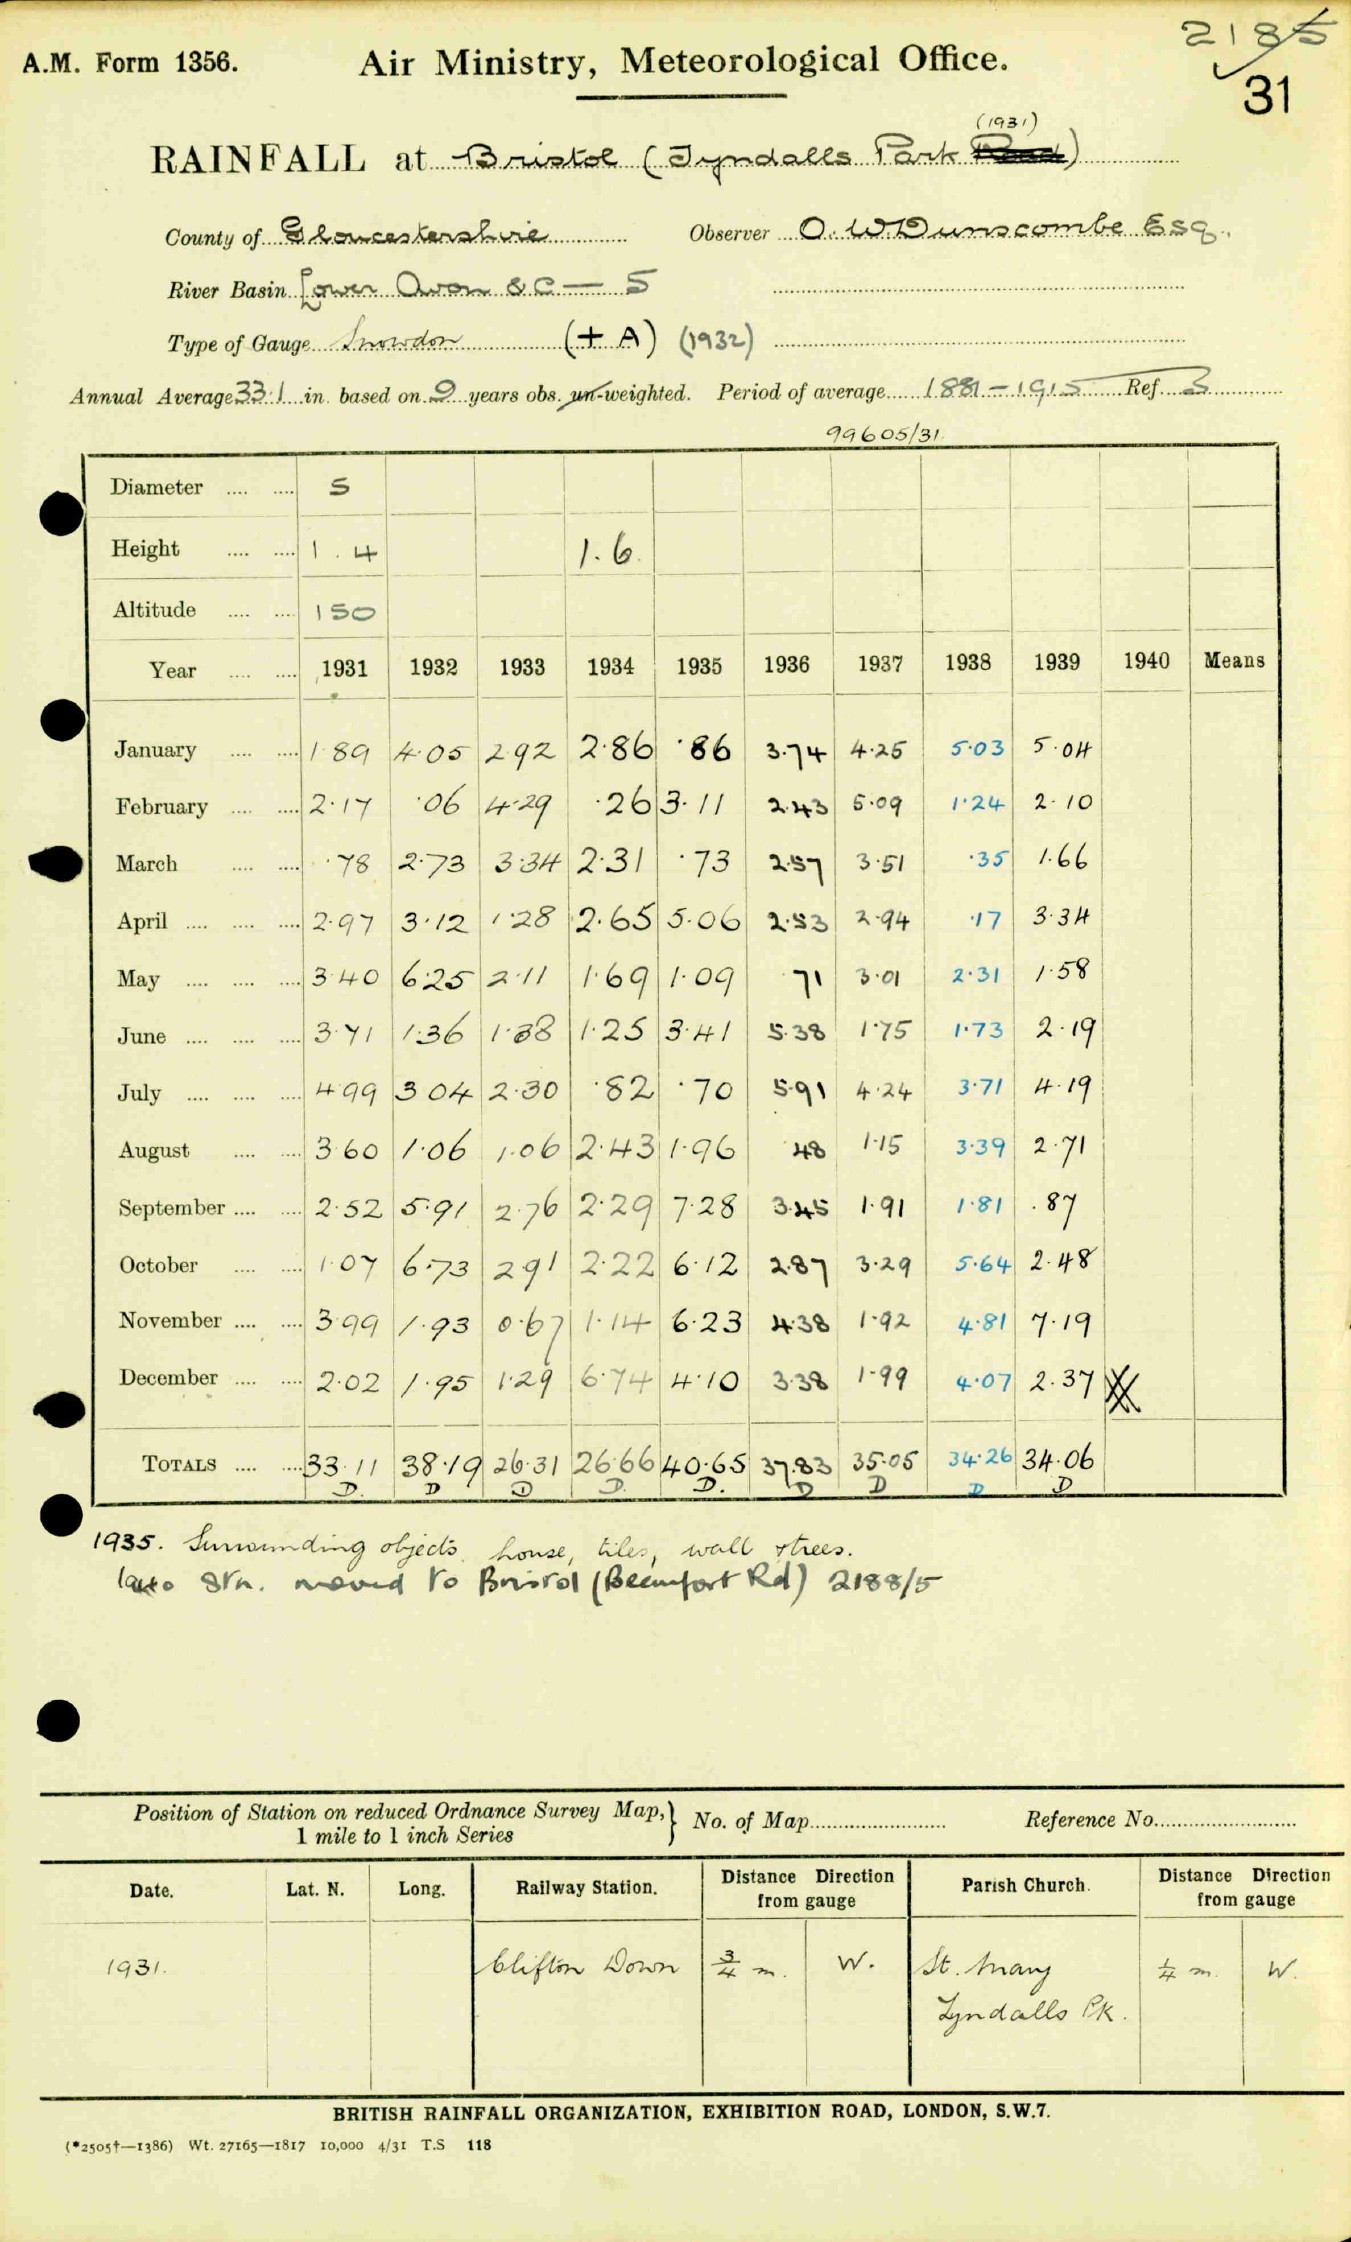 2185
31
A.M. Form 1356.
Air Ministry, Meteorological Office.
(1931)
RAINFALL at Bristol (Tyndalls Park Road)
County of Gloucestershire Observer O. W. Dunscombe Esq.
River Basin Lower Avon &C — 5
Type of Gauge Snowdon (+ A) (1932)
Annual Average 33.1 in. based on 9 years obs. un-weighted. Period of average 1881-1915 Ref. 3
99605/31
Diameter .... .... 5
Height .... .... 1.4 1.6
Altitude .... .... 150
Year .... .... 1931 1932 1933 1934 1935 1936 1937 1938 1939 1940 Means
January .... .... 1.89 4.05 2.92 2.86 .86 3.74 4.25 5.03 5.04
February .... .... 2.17 .06 4.29 .26 3.11 2.43 5.09 1.24 2.10
March .... .... .78 2.73 3.34 2.31 .73 2.57 3.51 .35 1.66
April .... .... .... 2.97 3.12 1.28 2.65 5.06 2.53 2.94 .17 3.34
May .... .... .... 3.40 6.25 2.11 1.69 1.09 71 3.01 2.31 1.58
June .... .... .... 3.71 1.36 1.38 1.25 3.41 5.38 1.75 1.73 2.19
July .... .... .... 4.99 3.04 2.30 .82 .70 5.91 4.24 3.71 4.19
August .... .... 3.60 1.06 1.06 2.43 1.96 .48 1.15 3.39 2.71
September .... .... 2.52 5.91 2.76 2.29 7.28 3.45 1.91 1.81 .87
October .... .... 1.07 6.73 2.91 2.22 6.12 2.87 3.29 5.64 2.48
November .... .... 3.99 1.93 0.67 1.14 6.23 4.38 1.92 4.81 7.19
December .... .... 2.02 1.95 1.29 6.74 4.10 3.38 1.99 4.07 2.37
TOTALS .... .... 33.11 38.19 26.31 26.66 40.65 37.83 35.05 34.26 34.06
D. D D D. D. D D D D
1935. Surrounding objects, house, tiles, wall & trees.
Stn. moved to Bristol (Beaufort Rd) 2188/5
Position of Station on reduced Ordnance Survey Map,} No. of Map Reference No.
1 mile to 1 inch Series
Date. Lat. N. Long. Railway Station. Distance Direction from gauge Parish Church. Distance Direction from gauge
1931. Clifton Down ¾ m. W. St. Mary ¼ m. W.
Tyndalls Pk.
BRITISH RAINFALL ORGANIZATION, EXHIBITION ROAD, LONDON, S.W.7.
(*2505†—1386) Wt. 27165—1817 10,000 4/31 T.S 118